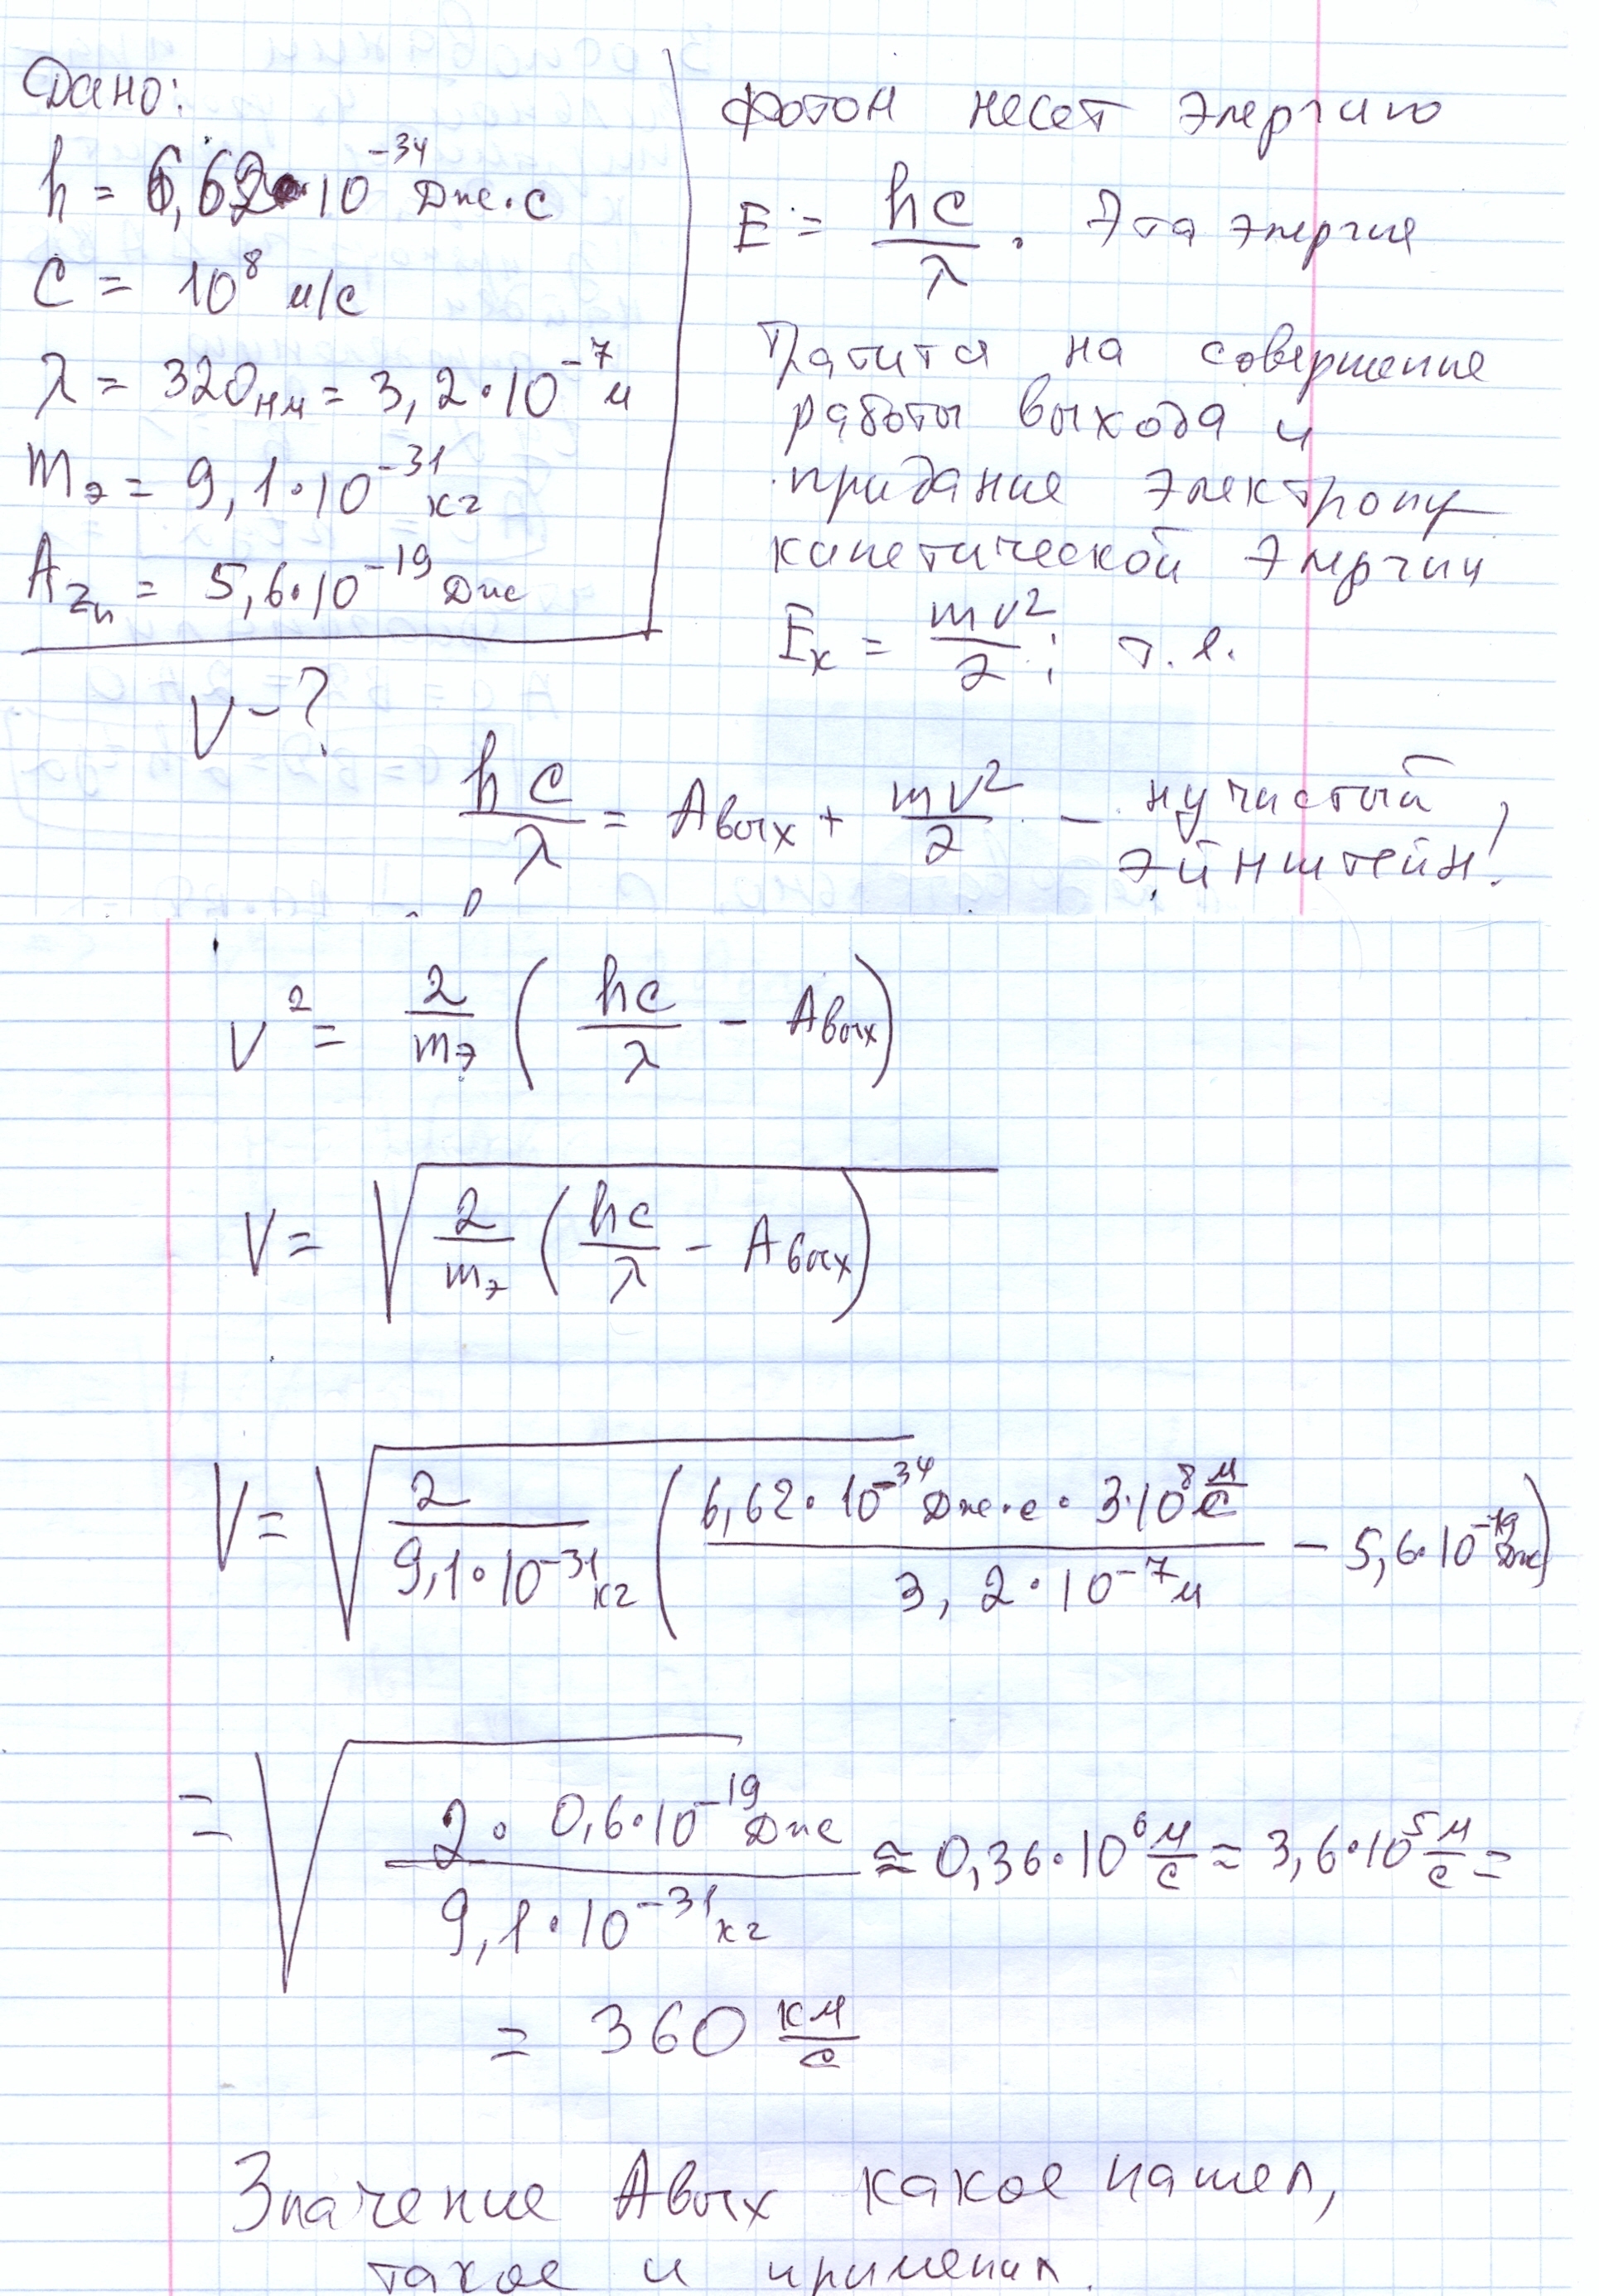 Дано:
h = 6,62·10⁻³⁴ Дж·с
c = 10⁸ м/с
λ = 320нм = 3,2·10⁻⁷м
mэ = 9,1·10⁻³¹ кг
A_Zn = 5,6·10⁻¹⁹ Дж
V - ?
Фотон несет энергию
E = hc/λ. Эта энергия
тратится на совершение
работы выхода и
придание электрону
кинетической энергии
Eк = mv²/2; т.е.
hc/λ = Aвых + mv²/2 - ну чистый
Эйнштейн!
V² = 2/mэ (hc/λ - Aвых)
V = √(2/mэ (hc/λ - Aвых))
V = √(2/(9,1·10⁻³¹кг) (6,62·10⁻³⁴ Дж·с · 3·10⁸ м/с / 3,2·10⁻⁷м - 5,6·10⁻¹⁹Дж))
= √(2·0,6·10⁻¹⁹ Дж / 9,1·10⁻³¹кг) ≈ 0,36·10⁶ м/с ≈ 3,6·10⁵ м/с =
= 360 км/с
Значение Aвых какое нашел,
такое и применил.